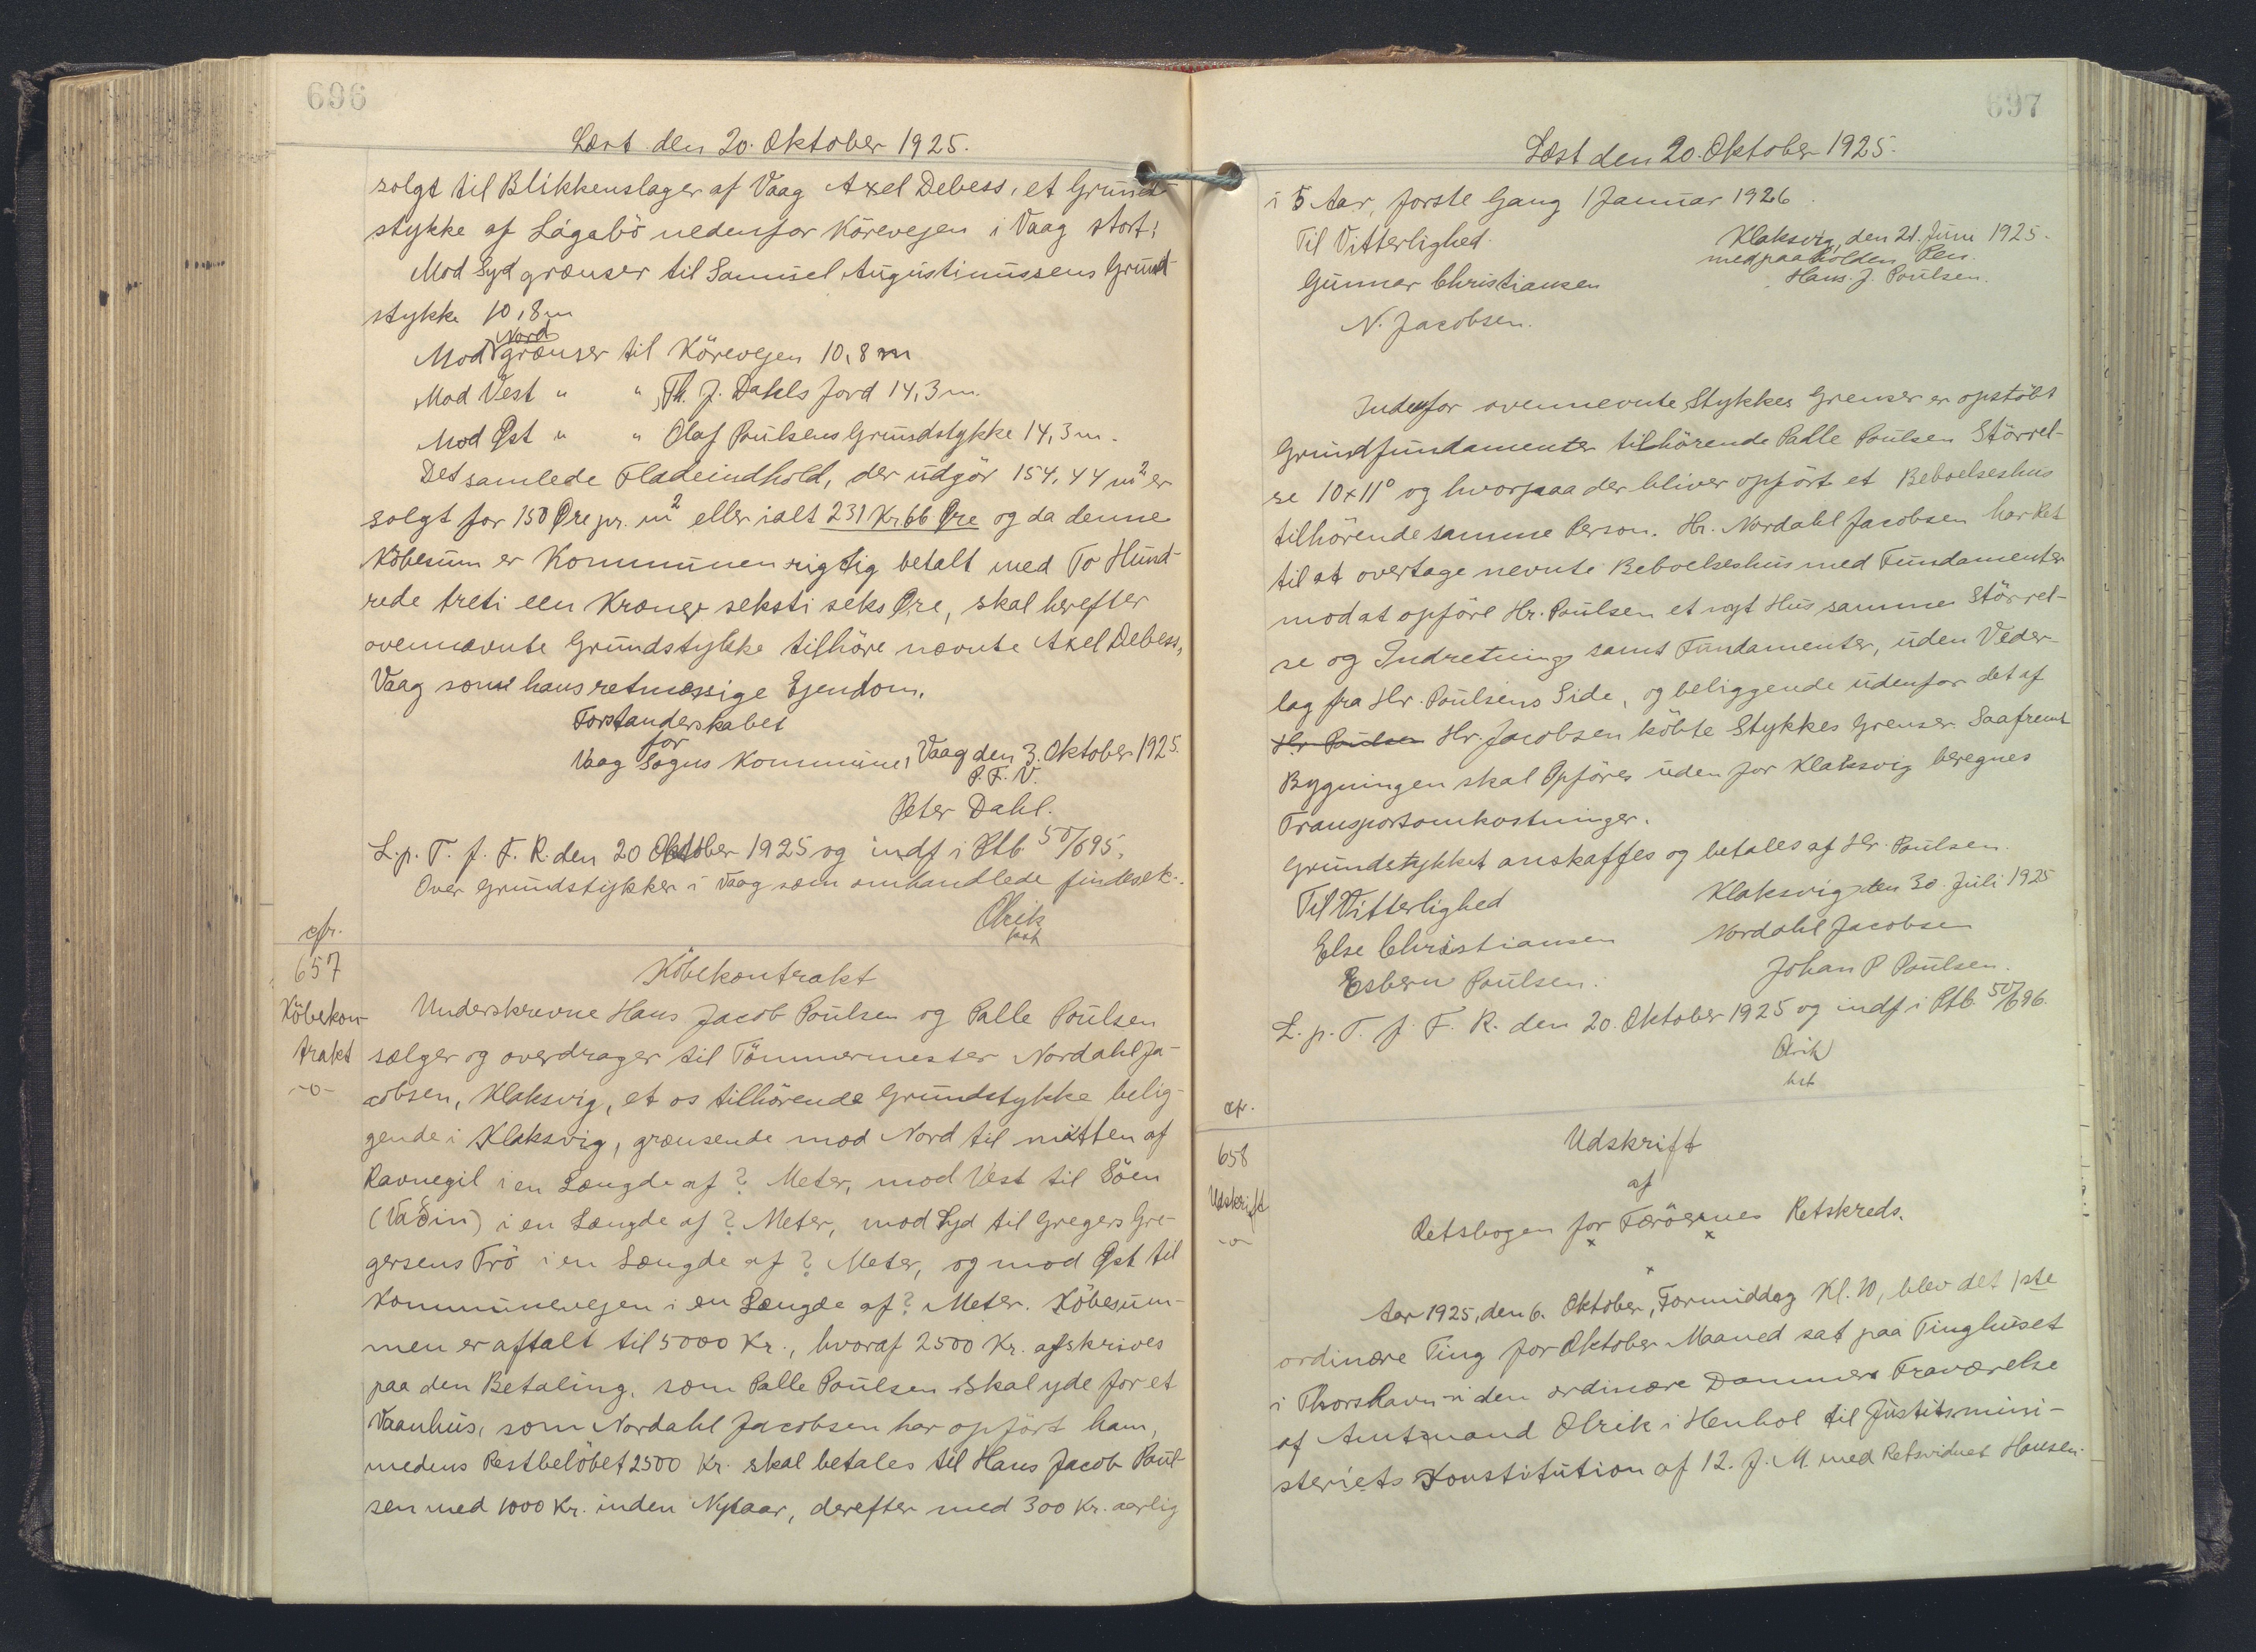 696
Læst den 20. Oktober 1925.
solgt til Blikkenslager af Vaag Axel Debess, et Grund-
stykke af Lágabö nedenfor Körevejen i Vaag stort:
Mod Syd grænser til Samuel Augustinussens Grund-
stykke 10,8 m
Mod Nord grænser til Körevejen 10,8 m
Mod Vest " " Th. J. Dahls Jord 14,3 m.
Mod Øst " " Olaf Poulsens Grundstykke 14,3 m.
Det samlede Fladeindhold, der udgör 154,44 m² er
solgt for 150 Øre pr. m² eller ialt 231 Kr 66 Øre og da denne
Köbesum er Kommunen rigtig betalt med To Hund-
rede treti een Kroner seksti seks Øre, skal herefter
ovennævnte Grundstykke tilhöre nævnte Axel Debess,
Vaag som hans retmæssige Ejendom.
Forstanderskabet
for
Vaag Sogns Kommune, Vaag den 3. Oktober 1925.
P. F. V.
Peter Dahl.
L. p. T. f. F. R. den 20 Oktober 1925 og indf i Ptb 50/695.
Over Grundstykker i Vaag som omhandlede findes ek..
Olrik
kst
cfr.
657
Köbekon-
trakt
-o-
Köbekontrakt
Underskrevne Hans Jacob Poulsen og Palle Poulsen
sælger og overdrager til Tömmermester Nordahl Ja-
cobsen, Klaksvig, et os tilhörende Grundstykke belig-
gende i Klaksvig, grænsende mod Nord til mitten af
Ravnegil i en Længde af ? Meter, mod Vest til Söen
(Vaðin) i en Længde af ? Meter, mod Syd til Gregers Gre-
gersens Trö i en Længde af ? Meter, og mod Øst til
Kommunevejen i en Længde af ? Meter. Köbesum-
men er aftalt til 5000 Kr., hvoraf 2500 Kr. afskrives
paa den Betaling, som Palle Poulsen skal yde for et
Vaanhus, som Nordahl Jacobsen har opfört ham,
medens Restbelöbet 2500 Kr. skal betales til Hans Jacob Poul-
sen med 1000 Kr. inden Nytaar, derefter med 300 Kr. aarlig
697
Læst den 20. Oktober 1925.
i 5 Aar, forste Gang 1 Januar 1926.
Til Vitterlighed.
Klaksvig, den 21. Juni 1925.
med paaholden Pen
Gunnar Christiansen
Hans. J. Poulsen.
N. Jacobsen.
Indenfor ovennevnte Stykkes Grenser er opstöbt
Grundfundamenter tilhörende Palle Poulsen Störrel-
se 10x11° og hvorpaa der bliver opfört et Beboelseshus
tilhörende samme Person. Hr. Nordahl Jacobsen har Ret
til at overtage nevnte Beboelseshus med Fundamenter
mod at opföre Hr. Poulsen et nyt Hus samme Störrel-
se og Indretning samt Fundamenter, uden Veder-
lag fra Hr. Poulsens Side, og beliggende udenfor det af
Hr. Poulsen Hr. Jacobsen köbte Stykkes Grenser. Saafremt
Bygningen skal Opföres uden for Klaksvig beregnes
Transportomkostninger.
Grundstykket anskaffes og betales af Hr. Poulsen.
Til Vitterlighed
Klaksvig den 30. Juli 1925
Else Christiansen
Nordahl Jacobsen
Esbern Poulsen.
Johan P Poulsen.
L. p. T. f. F. R. den 20. Oktober 1925 og indf i Ptb. 50/696.
Olrik
kst
cfr.
658
Udskrift
-o-
Udskrift
af
Retsbogen for Færöernes Retskreds.
Aar 1925, den 6. Oktober, Formiddag Kl. 10, blev det 1ste
ordinære Ting for Oktober Maaned sat paa Tinghuset
i Thorshavn i den ordinære Dommers Fraværelse
af Amtmand Olrik i Henhol til Justitsmini-
steriets Konstitution af 12. f. M. med Retsvidnet Hansen.